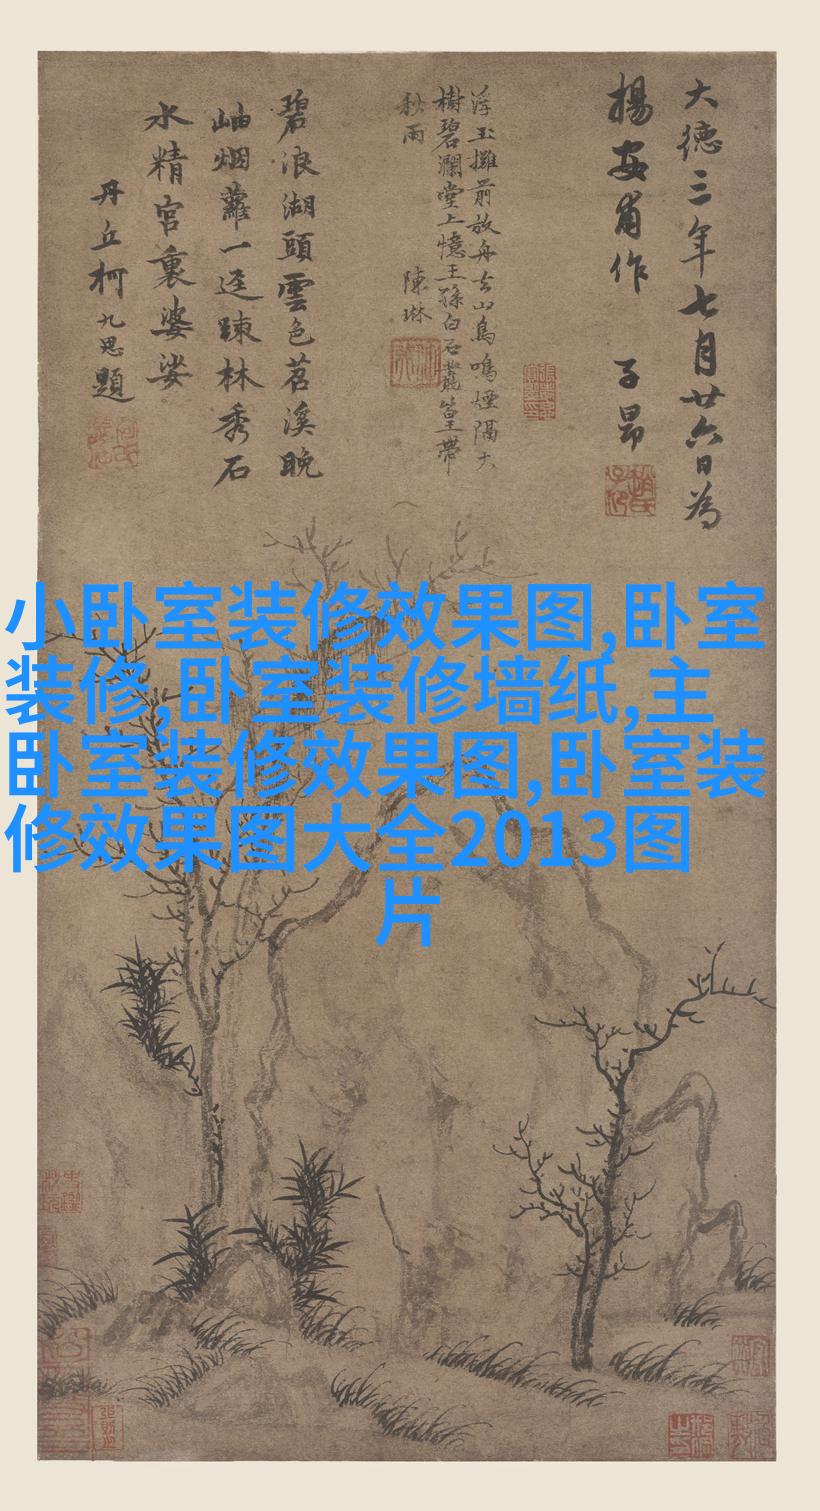 大德三年七月廿六日為
楊安甫作 子昂
浮玉攤前放舟去山鳥鳴煙隔大
樹碧瀾堂上憶王孫白石叢篁帶
秋雨 陳琳
碧浪湖頭雲色苕溪晚
岫烟蘿一逕踈林秀石
水精宮裏婆娑
丹丘柯九思題
小卧室装修效果图,卧室
装修,卧室装修墙纸,主
卧室装修效果图,卧室装
修效果图大全2013图
片